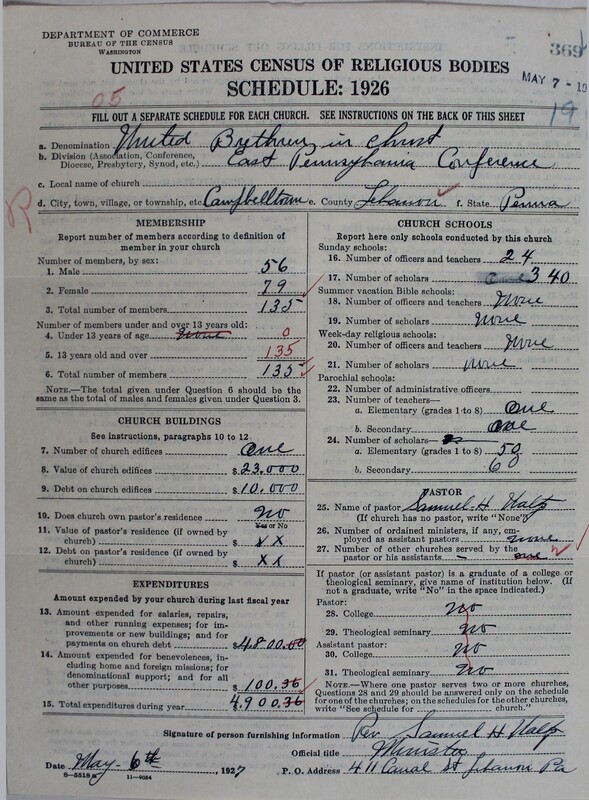 DEPARTMENT OF COMMERCE
BUREAU OF THE CENSUS
WASHINGTON
369
UNITED STATES CENSUS OF RELIGIOUS BODIES
MAY 7 - 19
SCHEDULE: 1926
05
19
FILL OUT A SEPARATE SCHEDULE FOR EACH CHURCH. SEE INSTRUCTIONS ON THE BACK OF THIS SHEET
a. Denomination United Brethren in Christ
b. Division (Association, Conference, Diocese, Presbytery, Synod, etc.) East Pennsylvania Conference
c. Local name of church
d. City, town, village, or township, etc. Campbelltown e. County Lebanon f. State Penna
R
MEMBERSHIP
Report number of members according to definition of
member in your church
Number of members, by sex:
1. Male 56
2. Female 79
3. Total number of members 135
Number of members under and over 13 years old:
4. Under 13 years of age none 0
5. 13 years old and over 135
6. Total number of members 135
NOTE.—The total given under Question 6 should be
the same as the total of males and females given under Question 3.
CHURCH BUILDINGS
See instructions, paragraphs 10 to 12
7. Number of church edifices one
8. Value of church edifices $ 23.000
9. Debt on church edifices $ 10.000
10. Does church own pastor's residence no
Yes or No
11. Value of pastor's residence (if owned by
church) $ x x
12. Debt on pastor's residence (if owned by
church) $ x x
EXPENDITURES
Amount expended by your church during last fiscal year
13. Amount expended for salaries, repairs,
and other running expenses; for im-
provements or new buildings; and for
payments on church debt $ 4.800.00
14. Amount expended for benevolences, in-
cluding home and foreign missions; for
denominational support; and for all
other purposes $ 100.36
15. Total expenditures during year $ 4.900.36
CHURCH SCHOOLS
Report here only schools conducted by this church
Sunday schools:
16. Number of officers and teachers 24
17. Number of scholars 340
Summer vacation Bible schools:
18. Number of officers and teachers none
19. Number of scholars none
Week-day religious schools:
20. Number of officers and teachers none
21. Number of scholars none
Parochial schools:
22. Number of administrative officers
23. Number of teachers—
a. Elementary (grades 1 to 8) one
b. Secondary one
24. Number of scholars—
a. Elementary (grades 1 to 8) 50
b. Secondary 60
PASTOR
25. Name of pastor Samuel H
(If church has no pastor, write "None")
26. Number of ordained ministers, if any, em-
ployed as assistant pastors none
27. Number of other churches served by the
pastor or his assistants
If pastor (or assistant pastor) is a graduate of a college or
theological seminary, give name of institution below. (If
not a graduate, write "No" in the space indicated.)
Pastor:
28. College no
29. Theological seminary no
Assistant pastor:
30. College no
31. Theological seminary no
NOTE.—Where one pastor serves two or more churches,
Questions 28 and 29 should be answered only on the schedule
for one of the churches; on the schedules for the other churches,
write "See schedule for church."
Signature of person furnishing information Rev Samuel H
Official title Minister
Date May 6th, 1927 P. O. Address 411 Canal St Lebanon Pa
8-5518a 11-9064